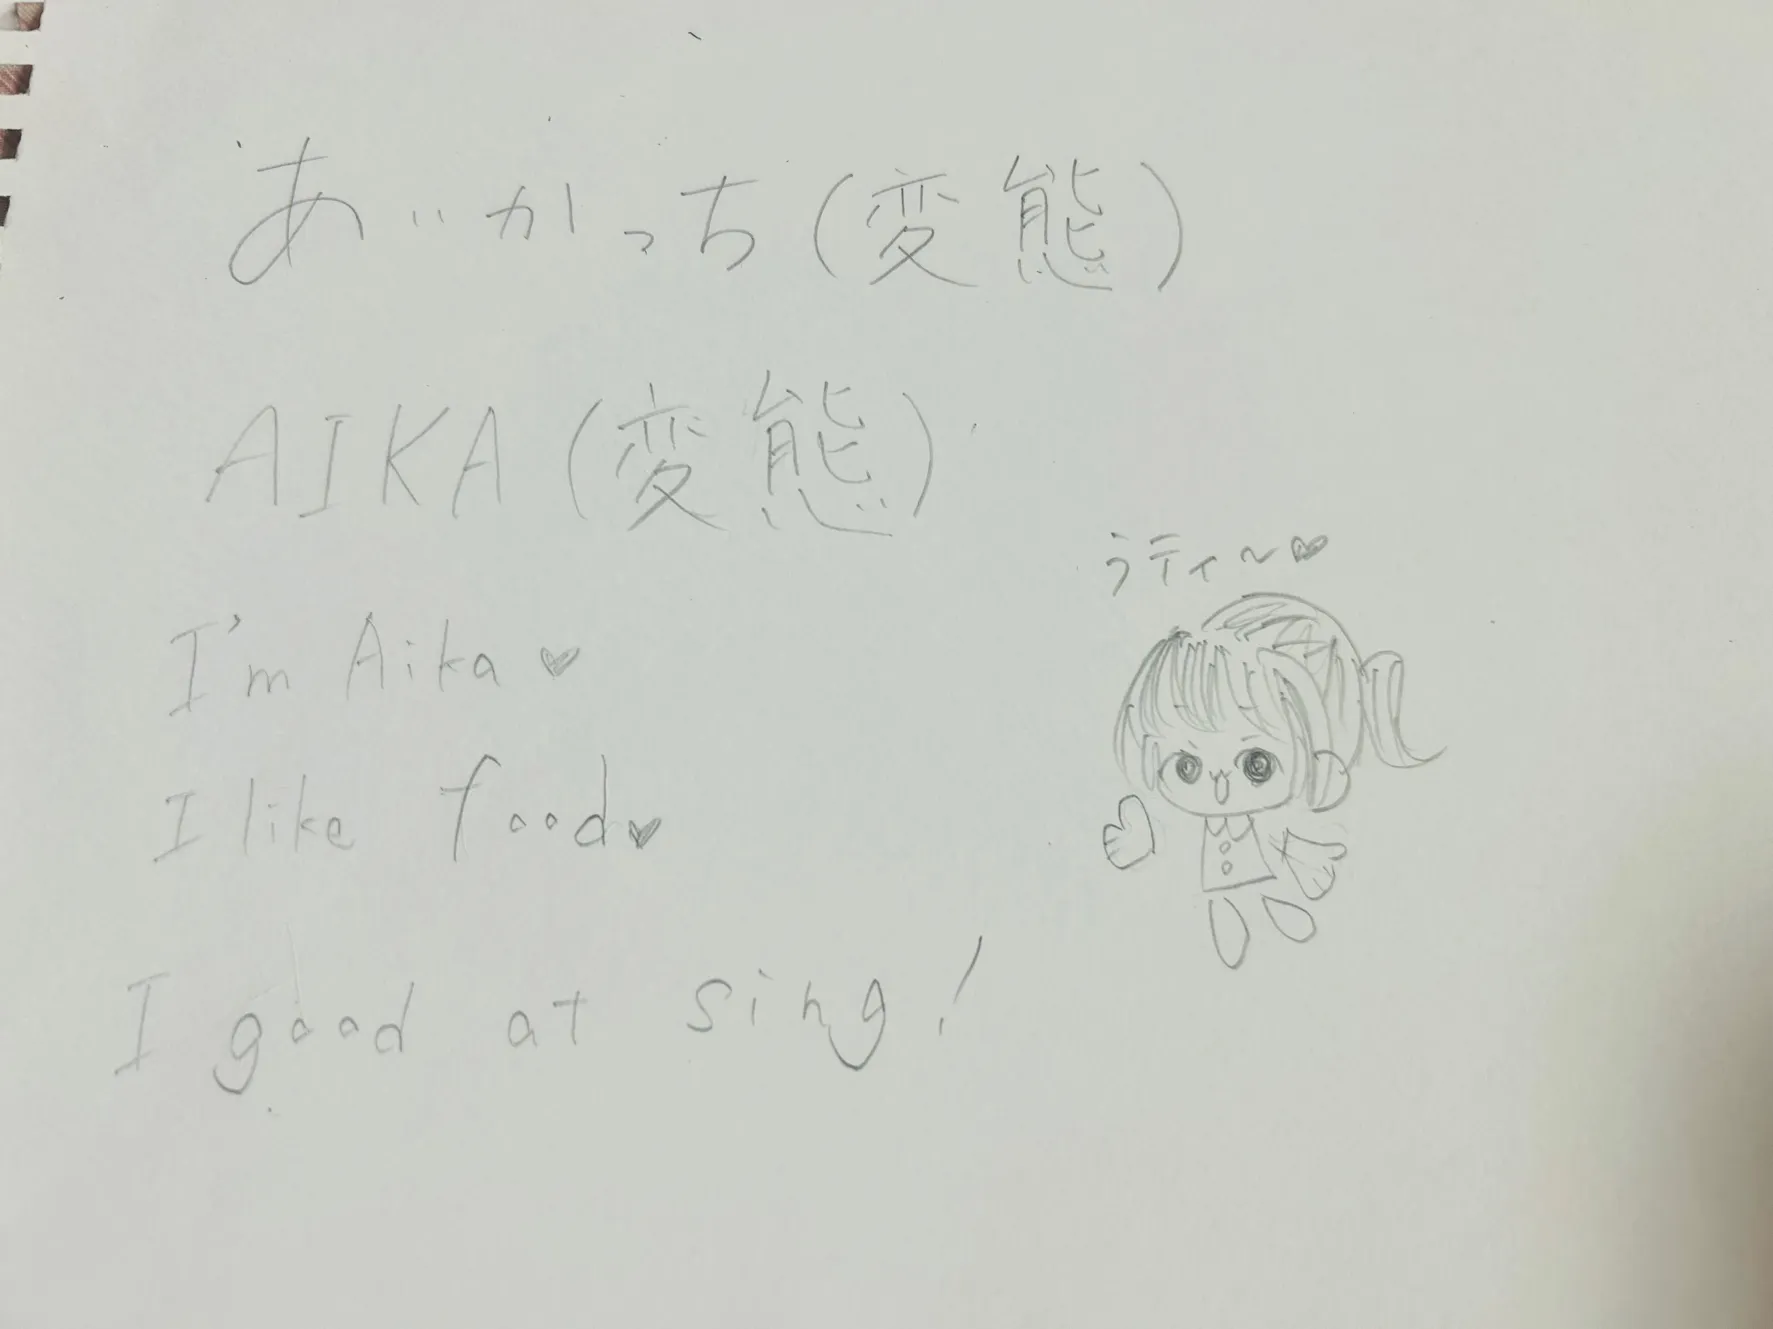 あいかっち(変態)
AIKA(変態)
I'm Aika♥
I like food♥
I good at sing!
うティ～♥